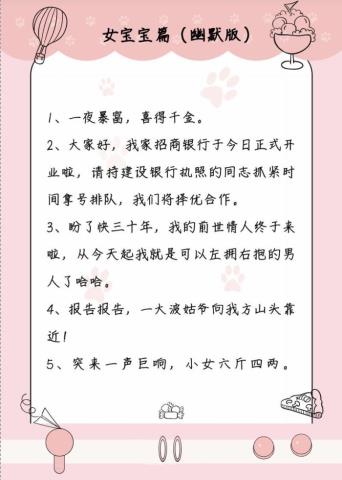 女宝宝篇（幽默版）
1、一夜暴富，喜得千金。
2、大家好，我家招商银行于今日正式开
业啦，请持建设银行执照的同志抓紧时
间拿号排队，我们将择优合作。
3、盼了快三十年，我的前世情人终于来
啦，从今天起我就是可以左拥右抱的男
人了哈哈。
4、报告报告，一大波姑爷向我方山头靠
近！
5、突来一声巨响，小女六斤四两。